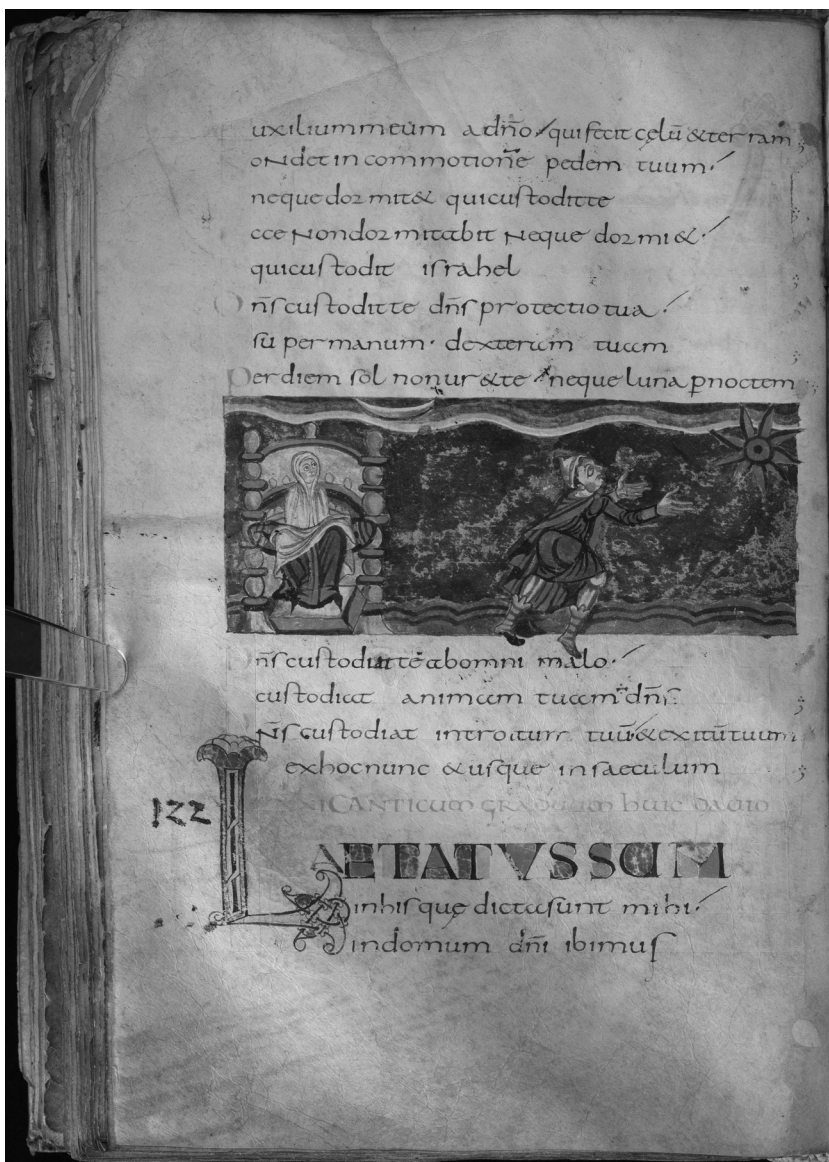 uxilium meum a dño / qui fecit cęlū & terram ;
on det in commotionē pedem tuum ·/
neque dormit& qui custodit te
cce non dormitabit neque dormi& ·/
qui custodit israhel
Dñs custodit te dñs protectio tua ·/
sū per manum · dexteram tuam
Per diem sol non ur& te / neque luna p noctem ;
Dñs custodit te ab omni malo ·/
custodiat animam tuam dñs ;
ñs custodiat introitum tuū / & exitū tuum ;
ex hoc nunc & usque in saeculum ;
CANTICUM GRADUUM huic DAVID
122
LAETATUS SUM
in his quę dicta sunt mihi ·/
in domum dñi ibimus